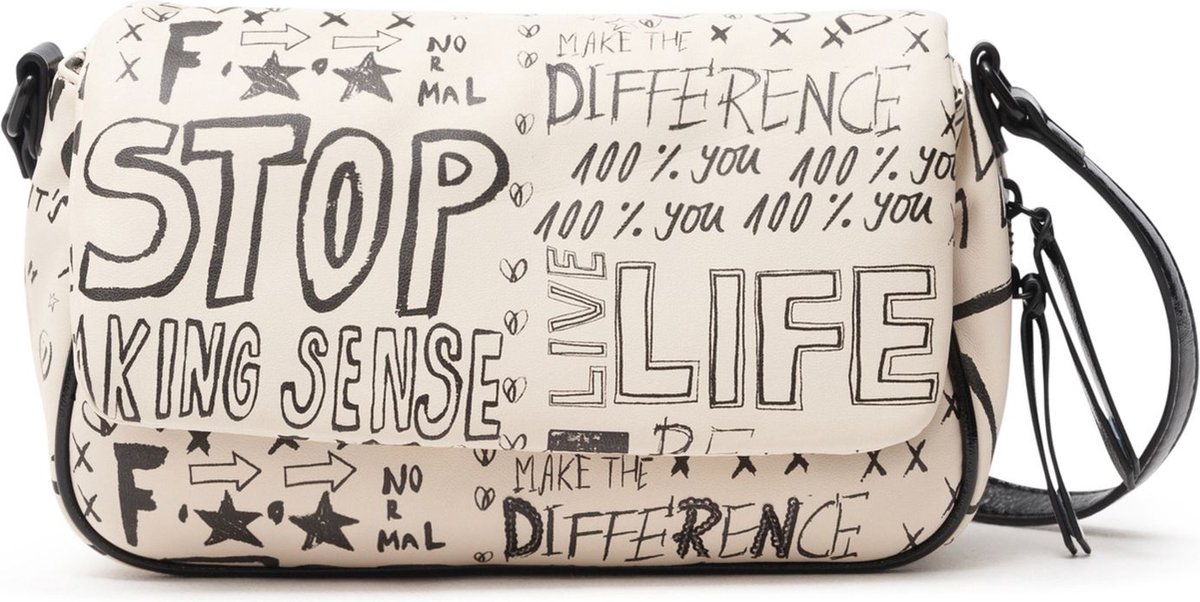 F
NO
R
MAL
STOP
AKING SENSE
MAKE THE
DIFFERENCE
100% you 100% you
100% you 100% you
LIVE
LIFE
IT'S
F
NO
R
MAL
MAKE THE
DIFFERENCE